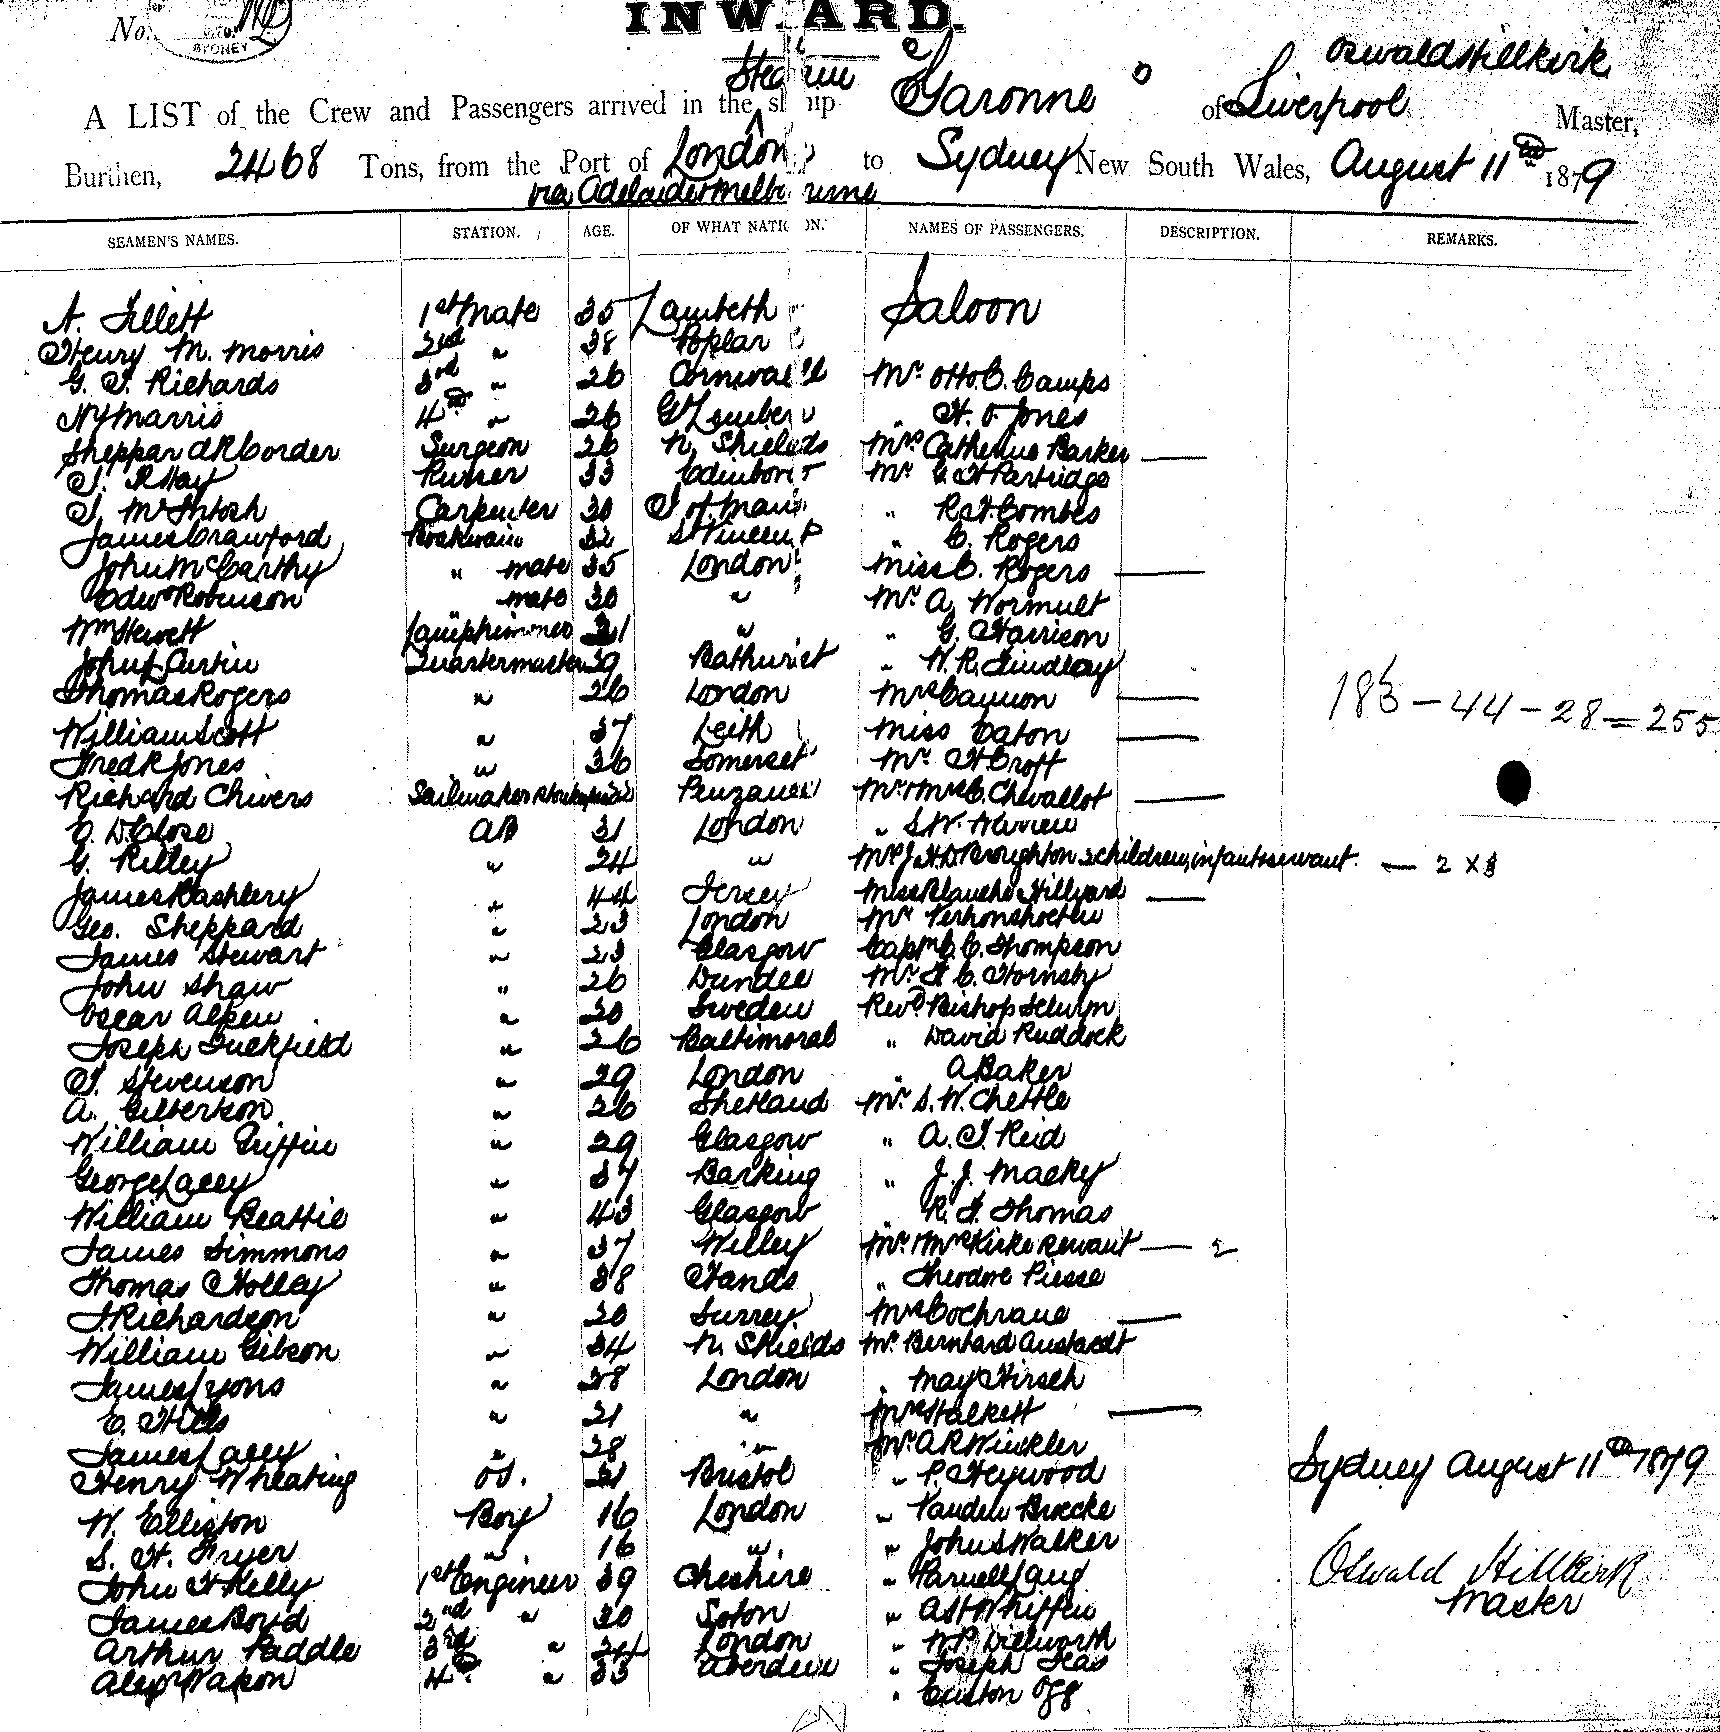 No.
SYDNEY
INWARD.
Oswald Hillkirk
A LIST of the Crew and Passengers arrived in the Steam ship Garonne of Liverpool Master,
Burthen, 2468 Tons, from the Port of London to Sydney New South Wales, August 11th 1879
via Adelaide & Melbourne
SEAMEN'S NAMES. STATION. AGE. OF WHAT NATION. NAMES OF PASSENGERS. DESCRIPTION. REMARKS.
A. Tillett 1st Mate 35 Lambeth Saloon
Henry M. Morris 2nd " 38 Poplar
G. T. Richards 3rd " 26 Cornwall Mr. Otto C. Camps
4th " 26 " H. O Jones
Sheppard R Corder Surgeon 26 N. Shields Mrs Catherine Barker —
T. R Hay Purser 33 Mr G H Partridge
T. McIntosh Carpenter 30 I of Man " R H Combes
James Crawford Boatswain 32 St Vincent " C. Rogers
John McCarthy " mate 35 London Miss C. Rogers —
Edwd Robinson mate 30 " Mr. A. Wormult
Wm Hewett Lamptrimmer 21 " " G. Harrison
John Curtin Quartermaster 39 Bathurst " W. R. Findlay
Thomas Rogers " 26 London Mrs Cannon —
183 - 44 - 28 = 255
William Scott " 37 Leith Miss Eaton —
Fredk Jones " 36 Somerset Mr. H Croft
Richard Chivers Sailmaker Penzance Mr & Mrs C. Chevallot —
C. D. Close AB 31 London " S. W.
G. Rilley " 24 " Mrs J. H. D Broughton 2 children, infant & servant. — 2 X
James Rashlery " 44 Jersey Miss Blanche Hillyard —
Geo. Sheppard " 23 London Mr
James Stewart " 23 Glasgow Captn C. C. Thompson
John Shaw " 26 Dundee Mr. F. C. Hornsby
Oscar Alpen " 20 Sweden Revd Bishop Selwyn
Joseph Tuckfield " 26 Baltimoral " David Ruddock
T. Stevenson " 29 London " A Baker
A. Gilbertson " 26 Shetland Mr. S. W. Chettle
William Griffin " 29 Glasgow " A. T. Reid
George Lacey " 37 Barking " J. J. Macky
William Beattie " 43 Glasgow R. F. Thomas
James Simmons " 37 Willey Mr. & Mrs Kirke & servant — 2
Thomas Holley " 38 Hands " Theodore Piesse
J. Richardson " 20 Surrey Mrs Cochrane —
William Gibson " 34 N. Shields Mr. Bernhard
James Lyons " 28 London " Max Hirsch
E. Hills " 21 " Mrs Halkett —
James Lacey " 28 " Mr. A R Winkler
Henry Wheating OS. 21 Bristol " P. Heywood
Sydney August 11th 1879
W. Elliston Boy 16 London " Vanden Broecke
S. H. Fryer " 16 " " John S Walker
John H Kelly 1st Engineer 39 Cheshire " Parnell Lang
Oswald Hillkirk
Master
James Boyd 2nd " 30 Soton " A St Whiffen
Arthur Paddle 3rd " 24 London " W. P. Dillworth
Alexr Watson 4th " 33 Aberdeen " Joseph
" Euston